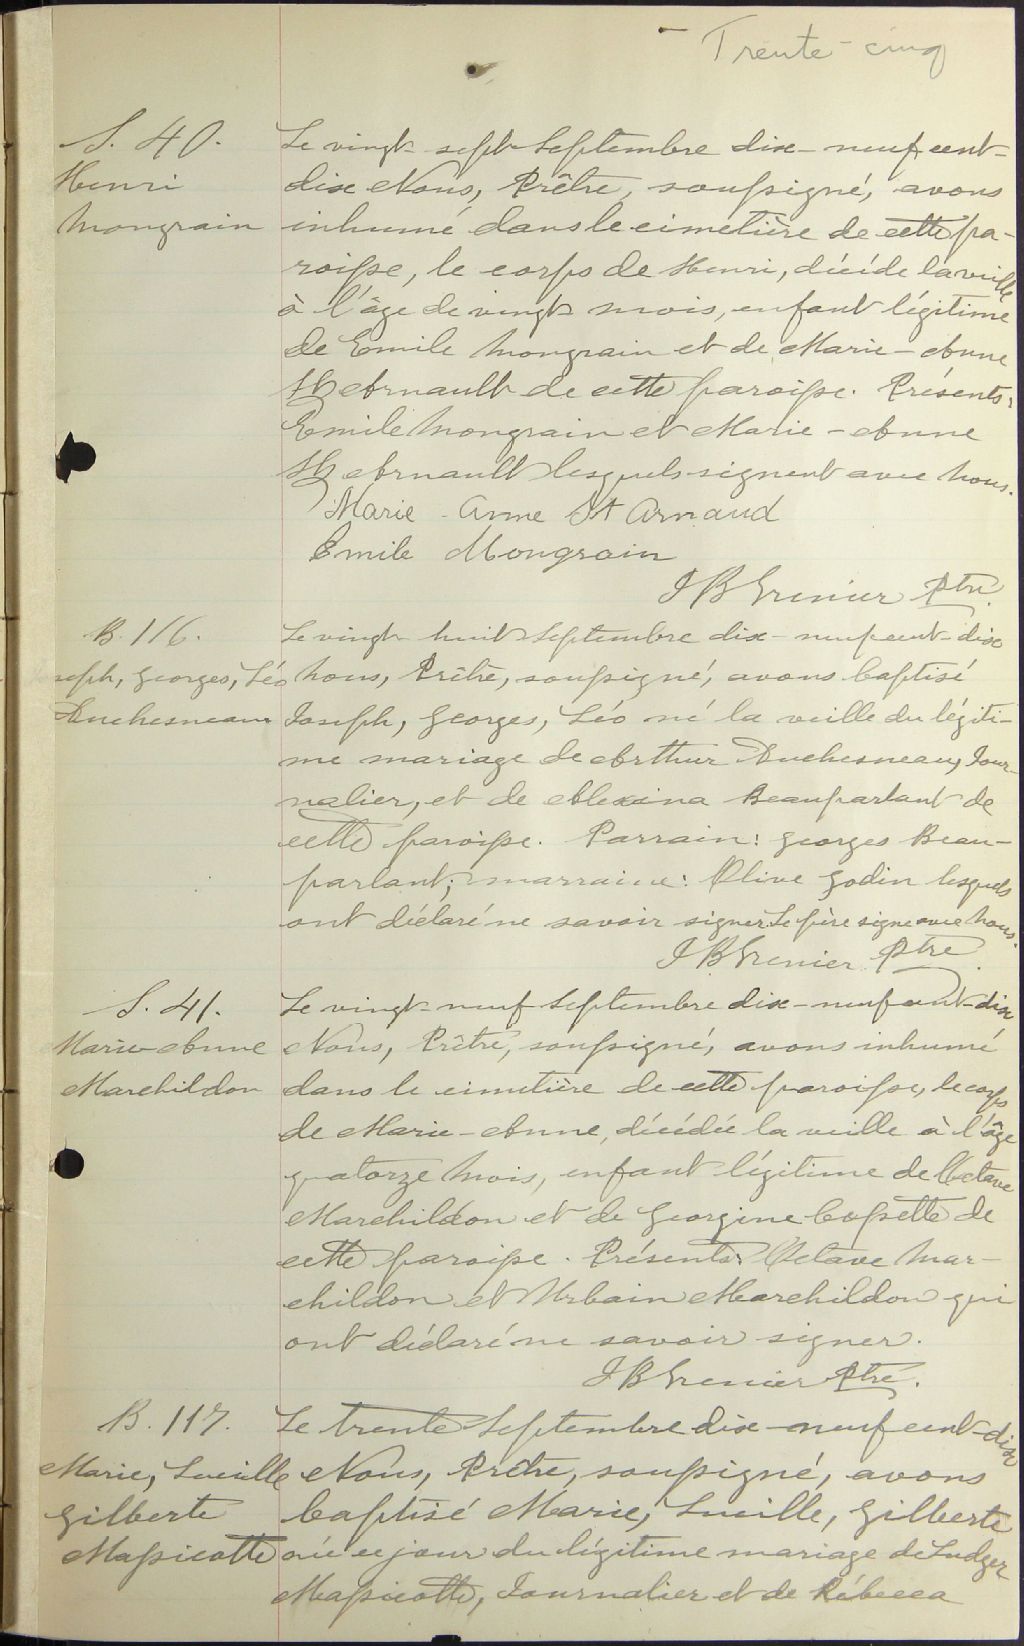 Trente-cinq
S. 40.
Henri
Mongrain
Le vingt-sept Septembre dix-neuf cent-
dix Nous, Prêtre, soussigné, avons
inhumé dans le cimetière de cette pa-
roisse, le corps de Henri, décédé la veille
à l'âge de vingt mois, enfant légitime
de Emile Mongrain et de Marie-Anne
St Arnault de cette paroisse. Présents:
Emile Mongrain et Marie-Anne
St Arnault lesquels signent avec nous.
Marie-Anne St Arnaud
Emile Mongrain
J B Grenier Ptre.
B. 116.
seph, Georges, Léo
Duchesneau
Le vingt-huit Septembre dix-neuf cent-dix
nous, Prêtre, soussigné, avons baptisé
Joseph, Georges, Léo né la veille du légiti-
me mariage de Arthur Duchesneau, Jour-
nalier, et de Alexina Beauparlant de
cette paroisse. Parrain: Georges Beau-
parlant; marraine: Olive Godin lesquels
ont déclaré ne savoir signer. Le père signe avec nous.
J B Grenier Ptre
S. 41.
Marie-Anne
Marchildon
Le vingt-neuf Septembre dix-neuf cent-dix
Nous, Prêtre, soussigné, avons inhumé
dans le cimetière de cette paroisse, le corps
de Marie-Anne, décédée la veille à l'âge
quatorze mois, enfant légitime de Octave
Marchildon et de Georgine Cossette de
cette paroisse. Présents: Octave Mar-
childon et Urbain Marchildon qui
ont déclaré ne savoir signer.
J B Grenier Ptre.
B. 117.
Marie, Lucille
Gilberte
Massicotte
Le trente Septembre dix-neuf cent-dix
Nous, Prêtre, soussigné, avons
baptisé Marie, Lucille, Gilberte
née ce jour du légitime mariage de Ludger
Massicotte, Journalier et de Rébecca